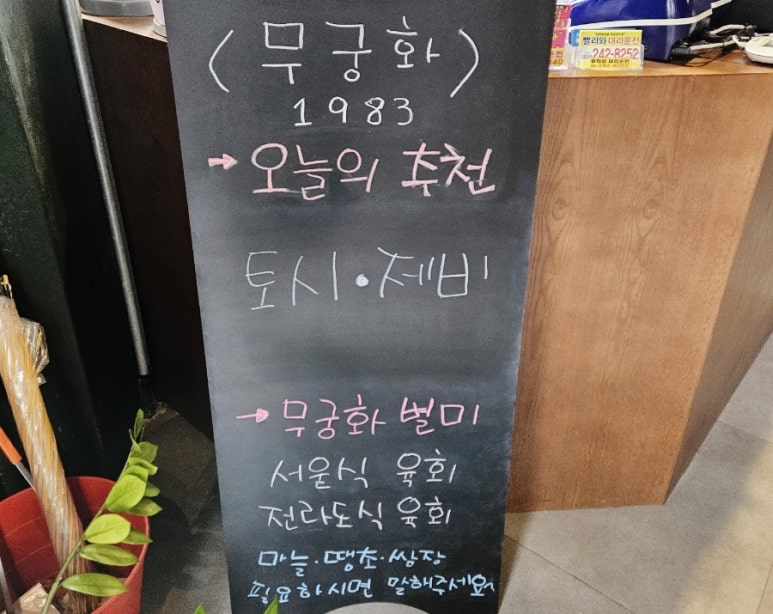 〈무궁화〉
1983
→ 오늘의 추천
토시·제비
→ 무궁화 별미
서울식 육회
전라도식 육회
마늘·땡초·쌈장
필요하시면 말해주세요
빨리와 대리운전
242-8252